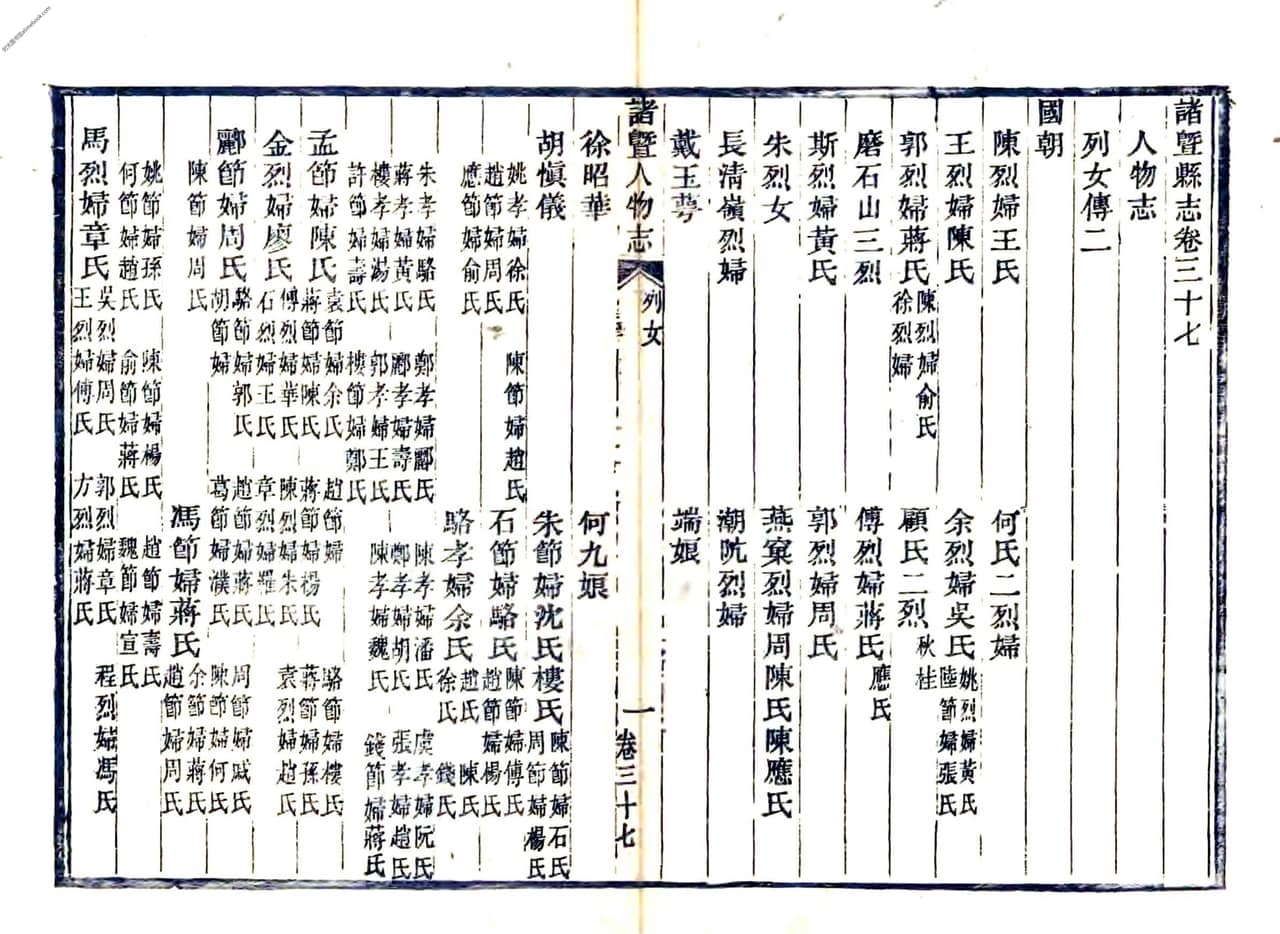 諸曁縣志卷三十七
人物志
列女傳二
國朝
陳烈婦王氏 何氏二烈婦
王烈婦陳氏 余烈婦吳氏 姚烈婦黃氏 陸節婦張氏
郭烈婦蔣氏 陳烈婦俞氏 徐烈婦 顧氏二烈 秋桂
磨石山三烈 傅烈婦蔣氏 應氏
斯烈婦黃氏 郭烈婦周氏
朱烈女 燕窠烈婦周陳氏陳應氏
長清嶺烈婦 潮阬烈婦
戴玉萼 端娘
諸曁人物志 列女 一 卷三十七
徐昭華 何九娘
胡愼儀 朱節婦沈氏樓氏 陳節婦石氏 周節婦楊氏
姚孝婦徐氏 陳節婦趙氏
趙節婦周氏 石節婦駱氏 陳節婦傅氏 趙節婦楊氏
應節婦俞氏 駱孝婦余氏 趙氏 陳氏 徐氏 錢氏
朱孝婦駱氏 鄭孝婦酈氏 陳孝婦潘氏 虞孝婦阮氏
蔣孝婦黃氏 酈孝婦壽氏 鄭孝婦胡氏 張孝婦趙氏
樓孝婦湯氏 郭孝婦王氏 陳孝婦魏氏 錢節婦蔣氏
許節婦壽氏 樓節婦鄭氏
孟節婦陳氏 袁節婦余氏 趙節婦 駱節婦樓氏
蔣節婦陳氏 蔣節婦楊氏 蔣節婦孫氏
金烈婦廖氏 傅烈婦華氏 陳烈婦朱氏 袁烈婦趙氏
石烈婦王氏 章烈婦羅氏
酈節婦周氏 駱節婦郭氏 趙節婦蔣氏 周節婦戚氏
胡節婦 葛節婦濮氏 陳節婦何氏
陳節婦周氏 馮節婦蔣氏 余節婦蔣氏 趙節婦周氏
姚節婦孫氏 陳節婦楊氏 趙節婦壽氏
何節婦趙氏 俞節婦蔣氏 魏節婦宣氏
馬烈婦章氏 吳烈婦周氏 郭烈婦章氏 程烈婦馮氏
王烈婦傅氏 方烈婦蔣氏